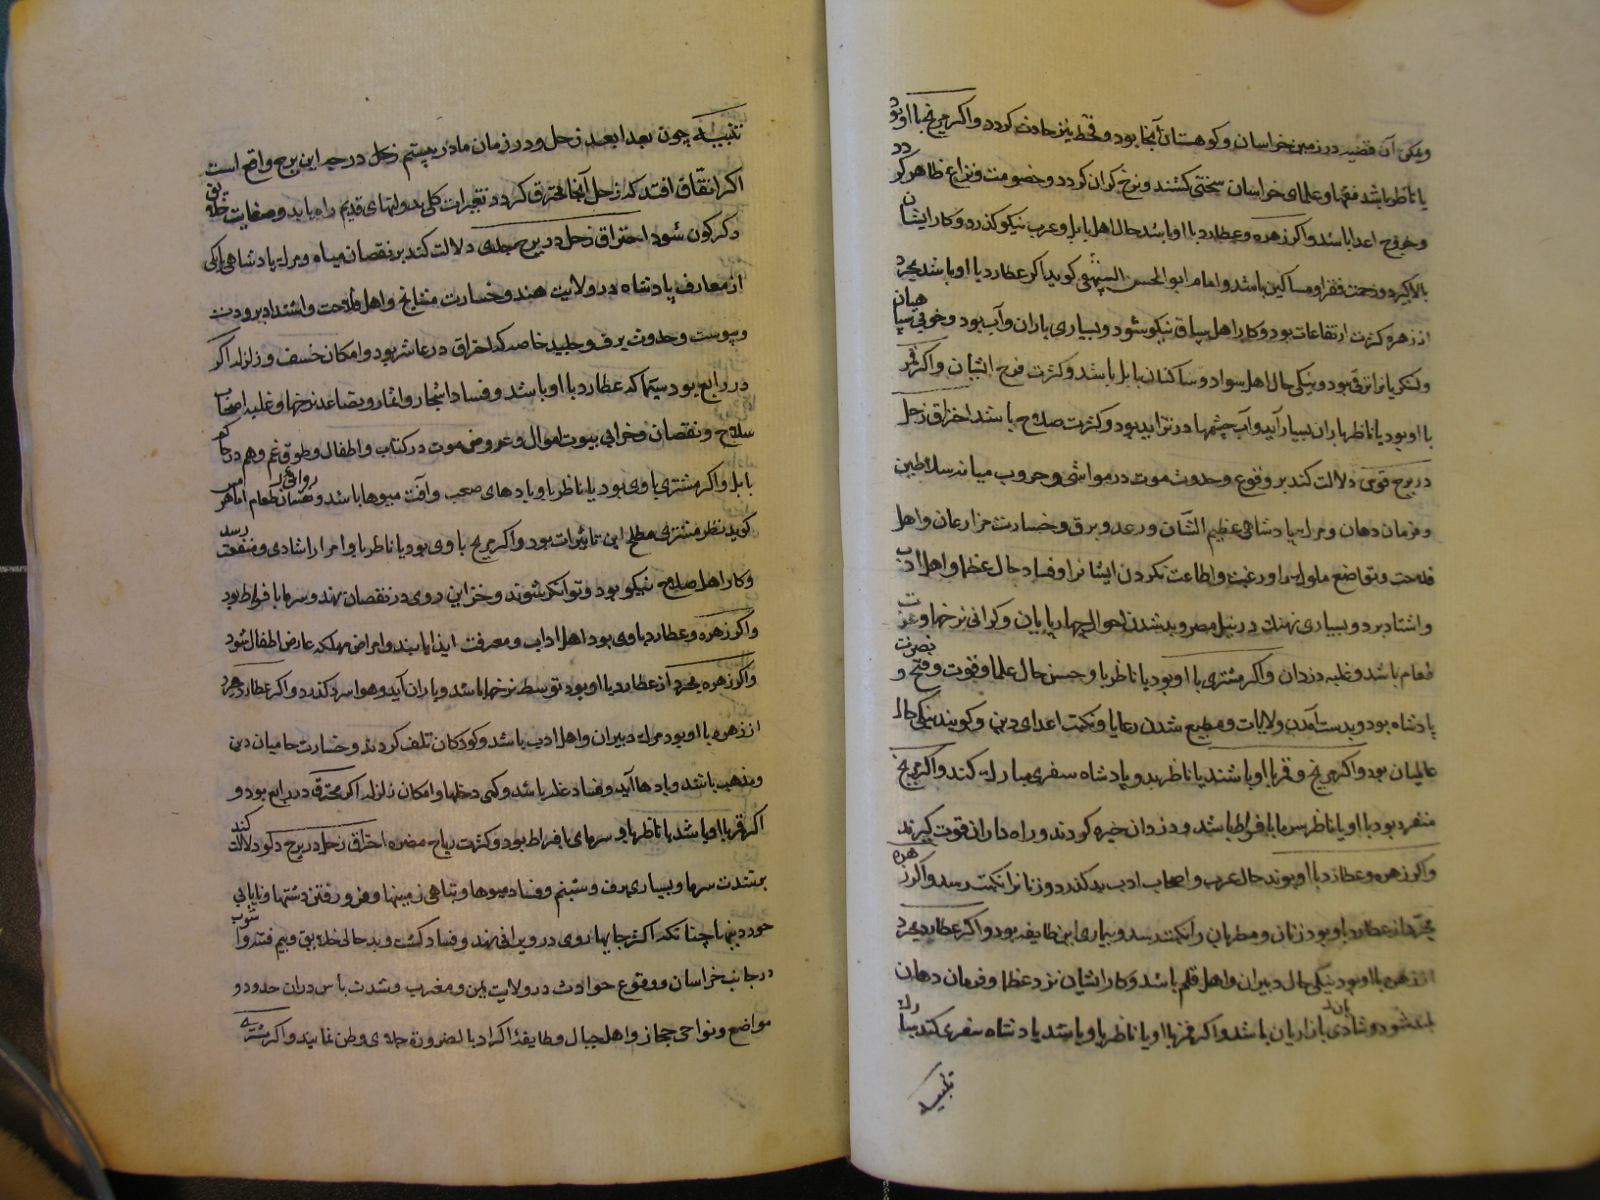 و یمکن آن قضیه در زمین خراسان و کوهستان آنجا بود و قحط نیز حادث گردد و اگر مریخ با او بود
یا ناظر باشد فقها و علمای خراسان سختی کشند و نرخ گران گردد و خصومت و نزاع ظاهر گردد
و خروج اعدا باشد و اگر زهره و عطارد با او باشد حال اهل بابل و عرب نیکو گذرد و کار ایشان
بالا گیرد و زحمت فقرا و مساکین باشد و امام ابو الحسن البیهقی گوید اگر عطارد با او باشد مجرد
از زهره کثرت ارتفاعات بود و کار اهل سیاق نیکو شود و بسیاری باران و آب بود و خوفی سپاهیان
و لشکریانرا ترقی بود و نیکی حال اهل سواد و ساکنان بابل باشد و کثرت فرح ایشان و اگر قمر
با او بود یا ناظر باران بسیار آید و آب چشمها در تزاید بود و کثرت صلاح باشد احتراق زحل
در برج قوس دلالت کند بر وقوع و حدوث موت در مواشی و حروب میانه سلاطین
و فرمان دهان و مرک پادشاهی عظیم الشان و رعد و برق و خسارت مزارعان و اهل
فلاحت و تواضع ملوک و رعیت و اطاعت نکردن ایشانرا و فساد حال عظما و اهل ادب
و اشتاد برد و بسیاری نهنک در نیل مصر و بد شدن احوال چهارپایان و گرانی نرخها و عزت
طعام باشد و غلبه دزدان و اگر مشتری با او بود یا ناظر باو حسن حال علما و قوت و فتح و نصرت
پادشاه بود و بدست آمدن ولایات و مطیع شدن رعایا و نکبت اعدای دین و گویند نیکی حال
عالمیان بود و اگر مریخ و قمر با او باشند یا ناظر بدو پادشاه سفری مبارک کند و اگر مریخ
منفرد بود با او یا ناظر سرما با فراط باشد و دزدان خیره گردند و راه داران قوت گیرند
و اگر زهره و عطارد با او بوند حال عرب و اصحاب ادب بد گذرد و زنانرا نکبت رسد و اگر زهره
مجرد از عطارد باو بود زنان و مطربان را نکبت رسد و بیماری این طایفه بود و اگر عطارد مجرد
از زهره با او بود نیکی حال دبیران و اهل قلم باشد و کار ایشان نزد عظما و فرمان دهان
بلند شود و شادی بازاریان باشد و اگر قمر با او یا ناظر باو باشد پادشاه سفری کند مبارک
تنبیه
تنبیه چون بعد ابعد زحل و در زمان ما در بیستم زحل درجه این برج واقع است
اگر اتفاق افتد که زحل آنجا محترق گردد تغیرات کلی بدولتهای قدیم راه یابد و صفات خلایق
دگرگون شود احتراق زحل در برج جدی دلالت کند بر نقصان میاه و مرک پادشاهی یا یکی
از معارف پادشاه در ولایت هند و خسارت مشایخ و اهل فلاحت و اشتداد برودت
و یبوست و حدوث برف و جلید خاصه که احتراق در عاشر بود و امکان خسف و زلزله اگر
در رابع بود سیما که عطارد با او باشد و فساد اشجار و اثمار و تصاعد نرخها و غلبه اصحاب
سلاح و نقصان و خرابی بیوت اموال و عروض موت در کتاب و اطفال و طوق غم و هم در حکام
بابل و اگر مشتری با وی بود یا ناظر باو بادهای صعب و آفت میوها باشد و نقصان طعام اما هر
گوید نظر مشتری مصلح این تاثیرات بود و اگر مریخ با وی بود یا ناظر باو امرا را شادی و منفعت رسد
و کار اهل صلاح نیکو بود و توانگر شوند و خزاین روی در نقصان نهند و سرما با فراط بود
و اگر زهره و عطارد با وی بود اهل آداب و معرفت ایذا یابند و امراض مهلکه عارض اطفال شود
و اگر زهره مجرد از عطارد با او بود توسط نرخها باشد و باران آید و هوا سرد گذرد و اگر عطارد مجرد
از زهره با او بود مرک دبیران و اهل ادب باشد و کودکان تلف گردند و خسارت حامیان دین
و مذهب باشد و بادها آید و فساد غله باشد و کمی دخلها و امکان زلزله اگر محترق در رابع بود و
اگر قمر با او باشد یا ناظر باو سرمای با فراط بود و کثرت ریاح مضره احتراق زحل در برج دلو دلالت کند
بر شدت سرما و بسیاری برف و شبنم و فساد میوها و تباهی زمینها و فرو رفتن دشتها و نایابی
خوردنیها چنانکه اکثر جایها روی در ویرانی نهند و فساد کشت و بد حالی خلایق و بیم فتنه و آشوب
در جانب خراسان و وقوع حوادث در ولایت یمن و مغرب و شدت باس در آن حدود و
مواضع و نواحی حجاز و اهل جبال و طایفه اکراد بالضروره جلای وطن نمایند و اگر مشتری